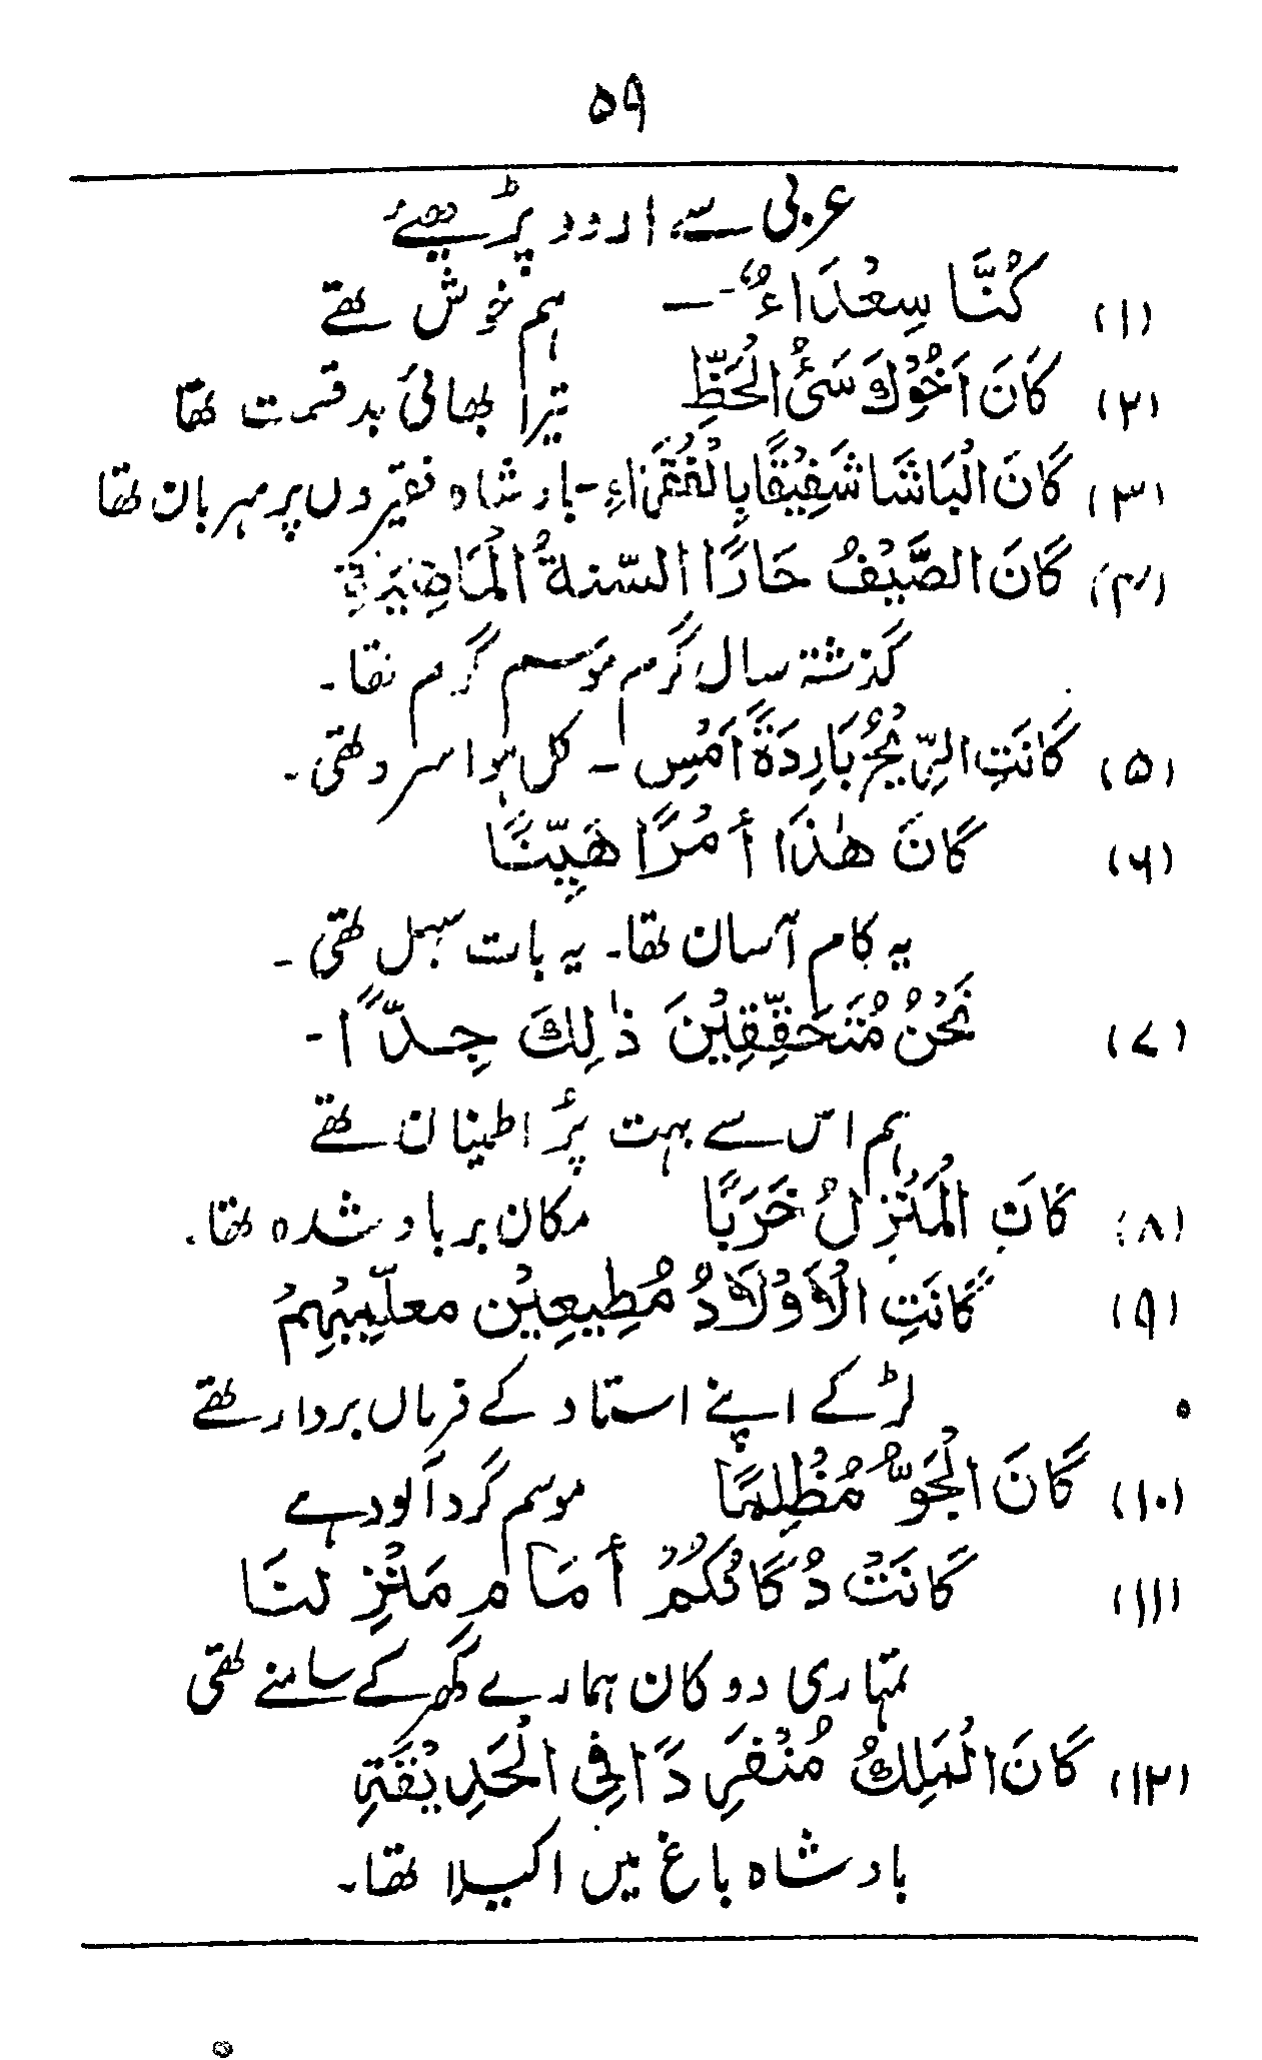 ۵۹
عربی سے اردو پڑھیئے
(۱) كُنَّا سِعْدَاءُ — ہم خوش تھے
(۲) كَانَ اَخُوْكَ سَئُ الْحَظِّ تیرا بھائی بدقسمت تھا
(۳) كَانَ الْبَاشَا شَفِيْقًا بِالْفُقَرَاءِ - بادشاہ فقیروں پر مہربان تھا
(۴) كَانَ الصَّيْفُ حَارًا السّنةُ الْمَاضِيَةِ
گذشتہ سال گرم موسم گرم تھا۔
(۵) كَانَتِ الرِّيْحُ بَارِدَةً اَمْسِ - کل ہوا سرد تھی۔
(۶) كَانَ هٰذَا أَمْرًا هَيِّنًا
یہ کام آسان تھا۔ یہ بات سہل تھی۔
(۷) نَحْنُ مُتَحَقِّقِيْنَ ذٰلِكَ جِدًّا -
ہم اس سے بہت پُر اطمینان تھے
(۸) كَانَ الْمَنْزِلُ خَرَبًا مکان برباد شدہ تھا۔
(۹) كَانَتِ الْأَوْلَادُ مُطِيعِيْن معلِّيبِهِمْ
لڑکے اپنے استاد کے فرماں بردار تھے
(۱۰) كَانَ الْجَوُّ مُظْلِمًا موسم گرد آلود ہے
(۱۱) كَانَتْ دُكَانُكُمْ أَمَام مَنْزِلنَا
تمہاری دوکان ہمارے گھر کے سامنے تھی
(۱۲) كَانَ الْمَلِكُ مُنْفَرِدًا فِي الْحَدِيْقَةِ
بادشاہ باغ میں اکیلا تھا۔